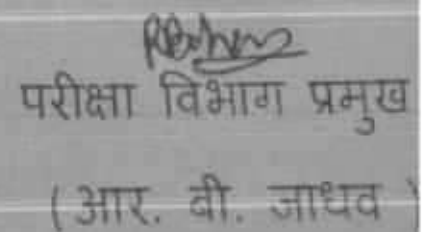 परीक्षा विभाग प्रमुख
(आर. बी. जाधव)